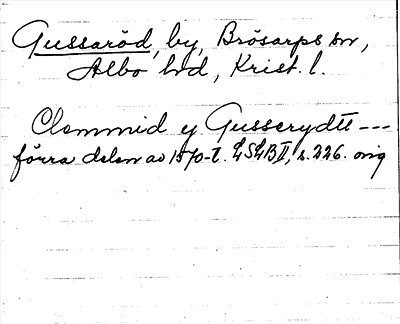 Gussaröd, by, Brösarps sn,
Albo hd, Krist. l.
Clemmid y Gusserydtt ---
förra delen av 1570-t. LSLB II, s. 226. orig